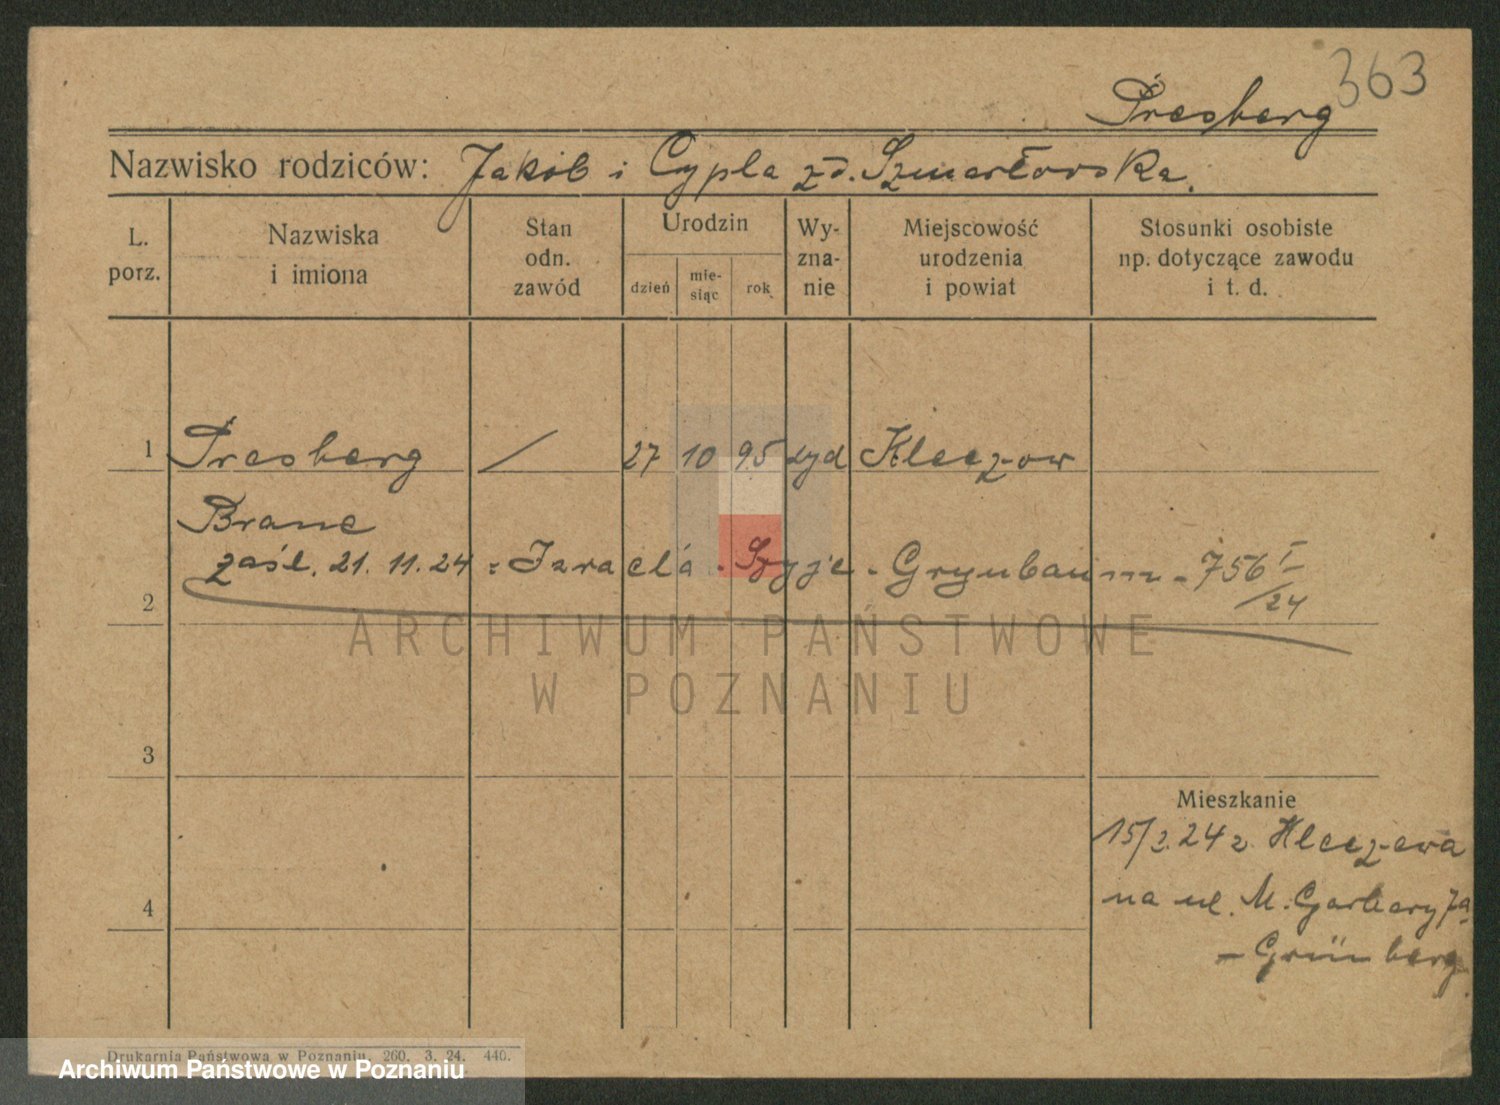 363
Presberg
Nazwisko rodziców: Jakób i Cypla zd.
L. porz.
Nazwiska i imiona
Stan odn. zawód
Urodzin
dzień
mie-siąc
rok
Wy-zna-nie
Miejscowość urodzenia i powiat
Stosunki osobiste np. dotyczące zawodu i t. d.
1 Presberg / 27 10 95 żyd Kleczow
Brane
zaśl. 21. 11. 24 = Izraela - Szyje - Grynbaum - 756 I/24
2
3
4
Mieszkanie
24 z Kleczewa
na ul. M. Garbary 7a
- Grünberg
ARCHIWUM PAŃSTWOWE
W POZNANIU
Drukarnia Państwowa w Poznaniu. 260. 3. 24. 440.
Archiwum Państwowe w Poznaniu